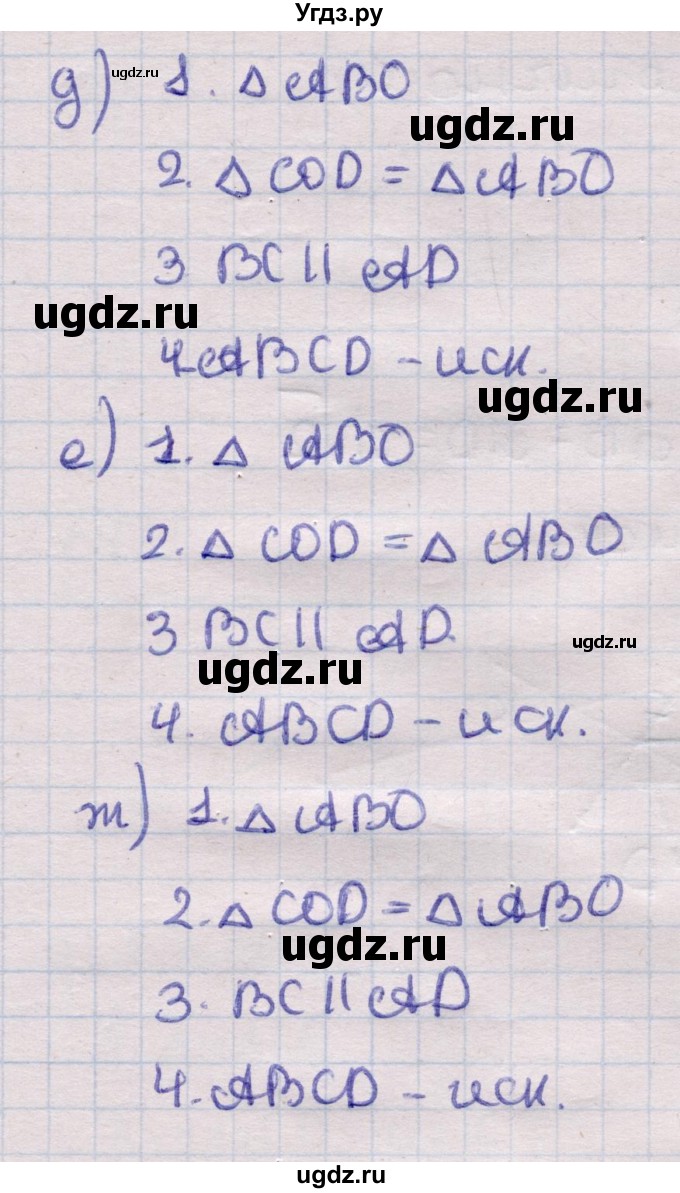 Угдз.ру
д) ugdz.ru 1. Δ ABO
ugdz.ru
2. Δ COD = Δ ABO
3 BC || AD
ugdz.ru
4. ABCD – иск.
ugdz.ru
е) 1. Δ ABO
2. Δ COD = Δ ABO
3 BC || AD.
ugdz.ru
ugdz.ru
4. ABCD – иск.
ж) 1. Δ ABO
2. Δ COD = Δ ABO
ugdz.ru
3. BC || AD
4. ABCD – иск.
ugdz.ru